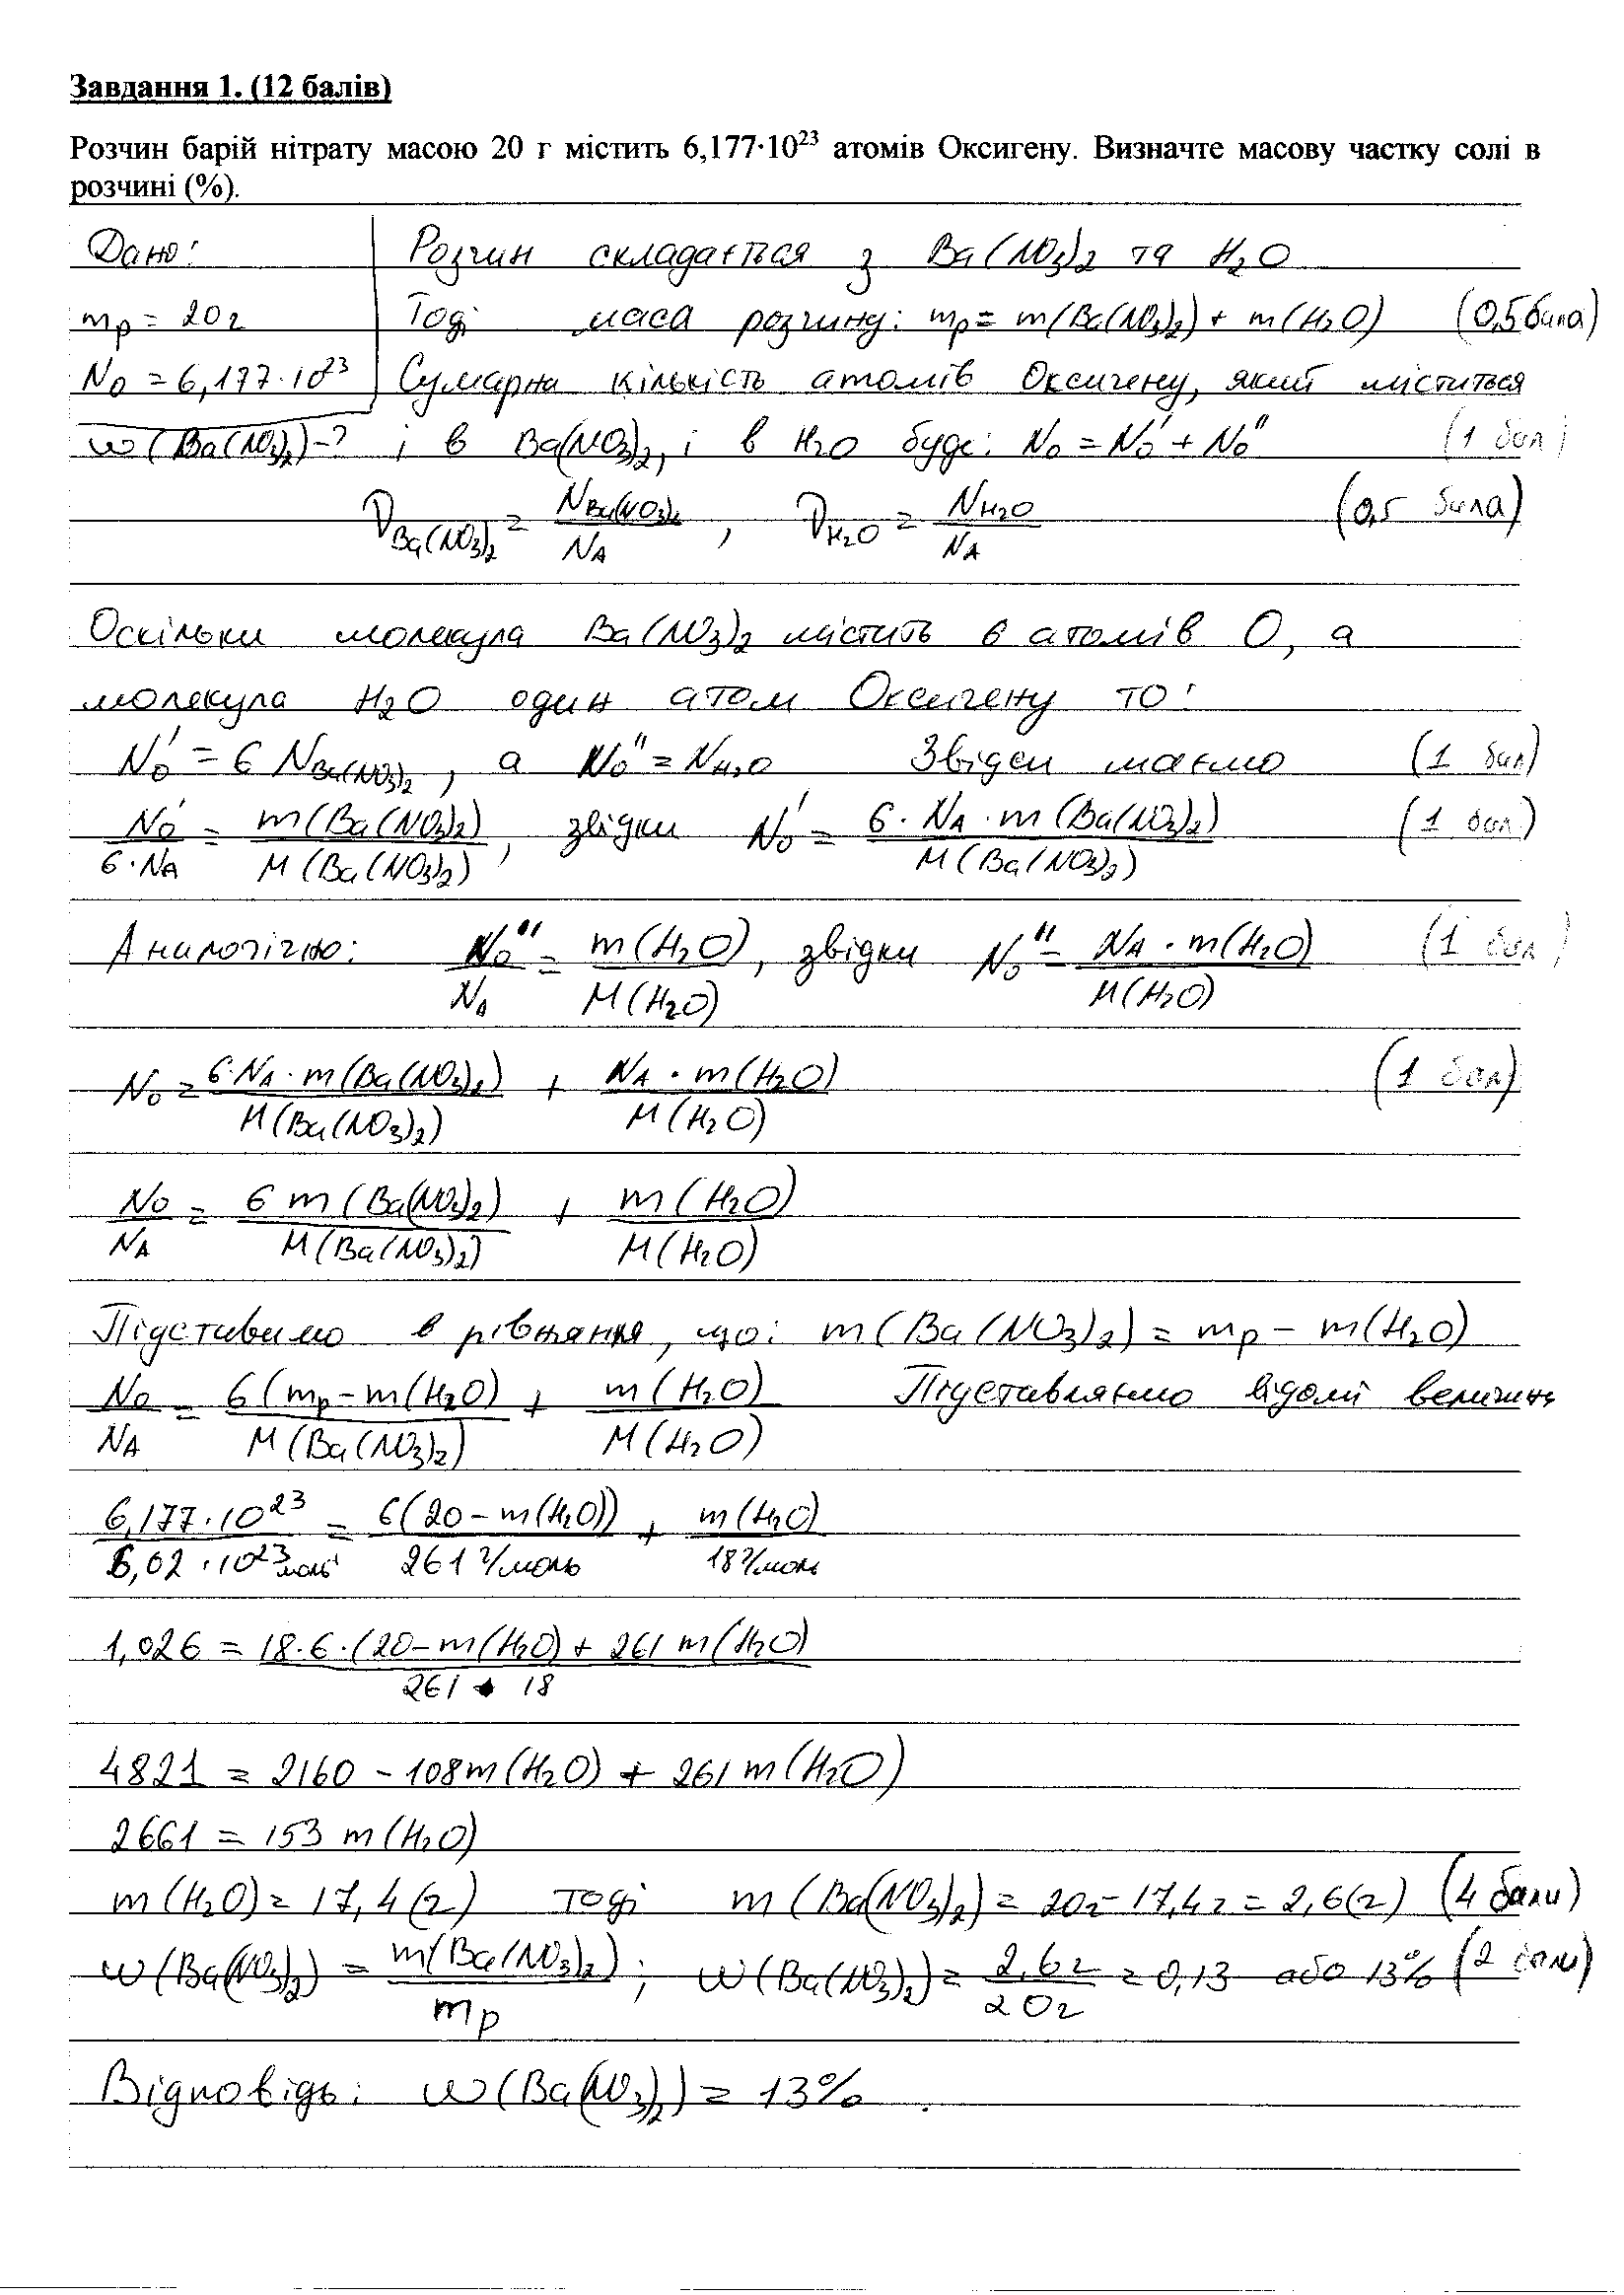 Завдання 1. (12 балів)
Розчин барій нітрату масою 20 г містить 6,177·10²³ атомів Оксигену. Визначте масову частку солі в
розчині (%).
Дано: Розчин складається з Ba(NO3)2 та H2O
mр = 20 г Тоді маса розчину: mр = m(Ba(NO3)2) + m(H2O) (0,5 бала)
No = 6,177·10²³ Сумарна кількість атомів Оксигену, який міститься
w(Ba(NO3)2)-? і в Ba(NO3)2, і в H2O буде: No = No' + No'' (1 бал)
νBa(NO3)2 = NBa(NO3)2/NA , νH2O = NH2O/NA (0,5 бала)
Оскільки молекула Ba(NO3)2 містить 6 атомів О, а
молекула H2O один атом Оксигену то:
No' = 6 NBa(NO3)2, а No'' = NH2O Звідси маємо (1 бал)
No'/6·NA = m(Ba(NO3)2)/M(Ba(NO3)2), звідки No' = 6·NA·m(Ba(NO3)2)/M(Ba(NO3)2) (1 бал)
Аналогічно: No''/NA = m(H2O)/M(H2O), звідки No'' = NA·m(H2O)/M(H2O) (1 бал)
No = 6·NA·m(Ba(NO3)2)/M(Ba(NO3)2) + NA·m(H2O)/M(H2O) (1 бал)
No/NA = 6 m(Ba(NO3)2)/M(Ba(NO3)2) + m(H2O)/M(H2O)
Підставимо в рівняння, що: m(Ba(NO3)2) = mр - m(H2O)
No/NA = 6(mр - m(H2O)/M(Ba(NO3)2) + m(H2O)/M(H2O) Підставляємо відомі величини
6,177·10²³/6,02·10²³моль¹ = 6(20 - m(H2O))/261 г/моль + m(H2O)/18 г/моль
1,026 = 18·6·(20 - m(H2O) + 261 m(H2O)/261 · 18
4821 = 2160 - 108m(H2O) + 261 m(H2O)
2661 = 153 m(H2O)
m(H2O) = 17,4 (г) тоді m(Ba(NO3)2) = 20г - 17,4 г = 2,6(г) (4 бали)
w(Ba(NO3)2) = m(Ba(NO3)2)/mр ; w(Ba(NO3)2) = 2,6г/20г = 0,13 або 13% (2 бали)
Відповідь: w(Ba(NO3)2) = 13% .